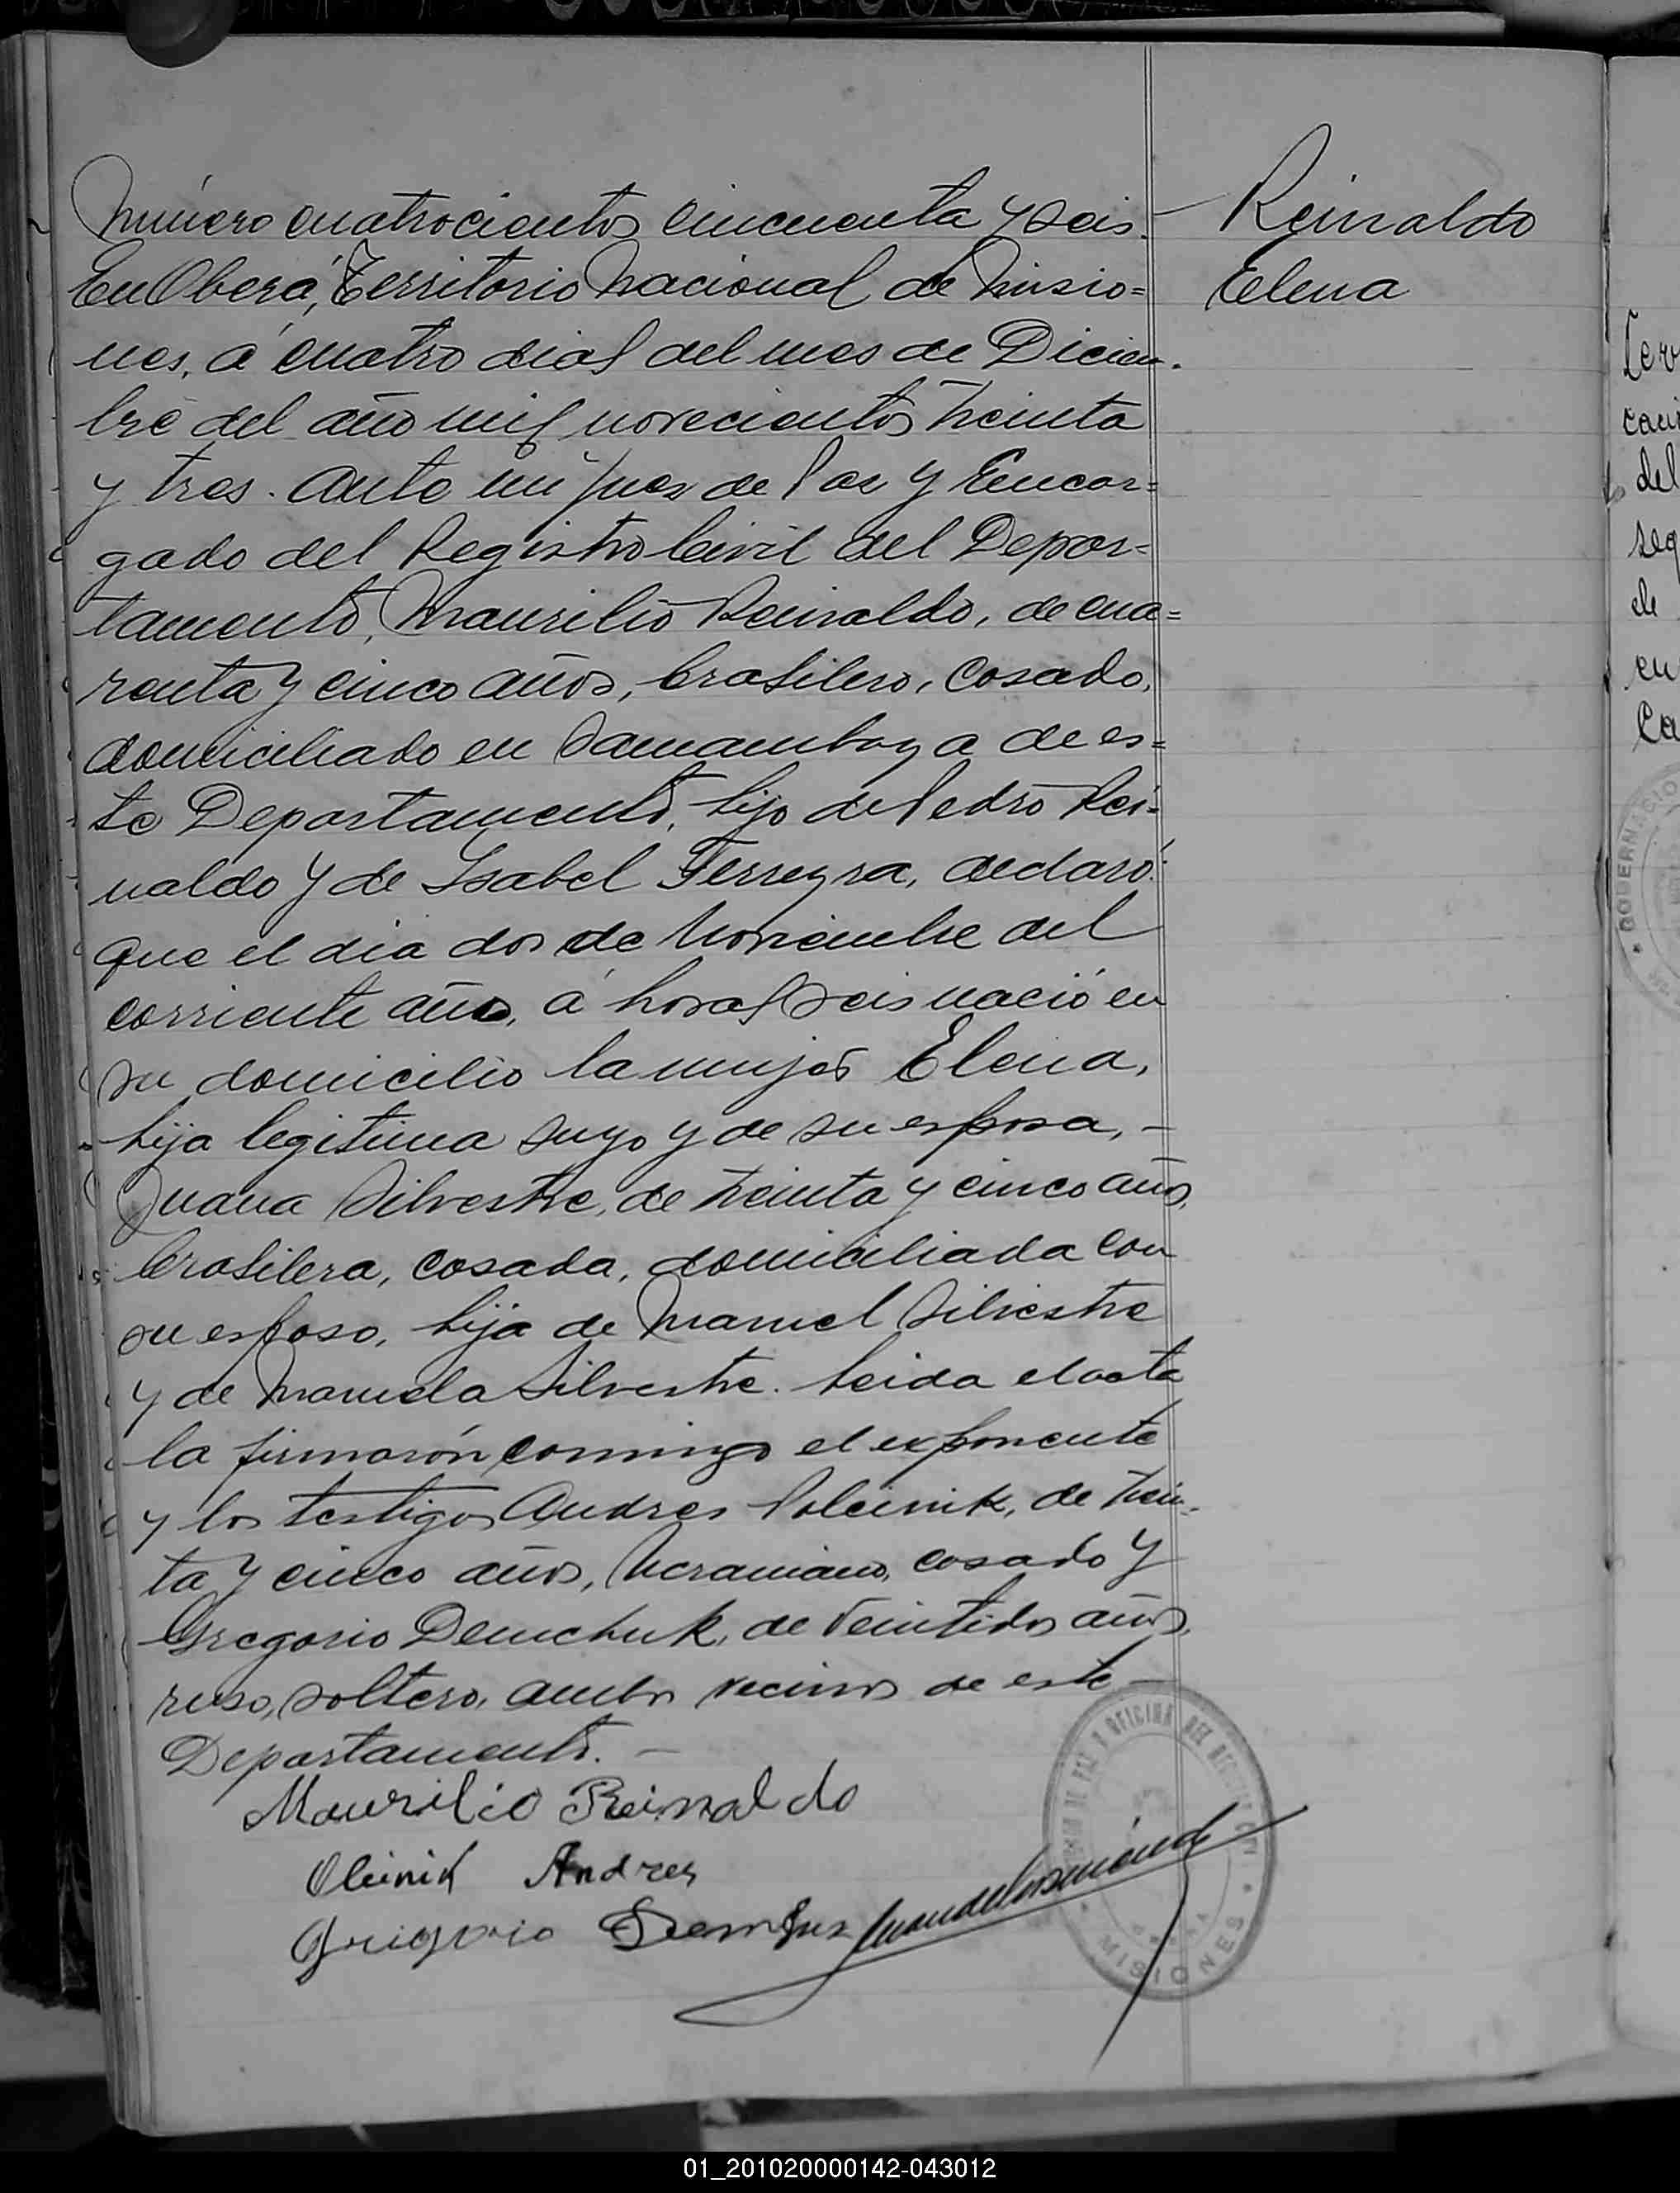 Número cuatrocientos cincuenta y seis.
En Oberá, Territorio Nacional de Misio=
nes, á cuatro dias del mes de Diciem-
bre del año mil novecientos treinta
y tres. Ante mi Juez de Paz y Encar=
gado del Registro Civil del Depar-
tamento, Maurilio Reinaldo, de cua=
renta y cinco años, brasilero, casado,
domiciliado en Samambaya de es=
te Departamento, hijo de Pedro Rei-
naldo y de Isabel Ferreyra, declaró:
que el dia dos de Noviembre del
corriente año, á horas seis nació en
su domicilio la mujer Elena,
hija legitima suya y de su esposa, -
Juana Silvestre, de treinta y cinco años,
brasilera, casada, domiciliada con
su esposo, hija de Manuel Silvestre
y de Manuela Silvestre. Leida el acta
la firmarón conmigo el exponente
y los testigos Andres Oleinik, de trein-
ta y cinco años, Ucraniano, casado y
Gregorio Demchuk, de veintidos años,
ruso, soltero, ambos vecinos de este -
Departamento. -
Maurilio Reinaldo
Oleinik Andres
Grigorio
MISIONES
Reinaldo
Elena
01_201020000142-043012